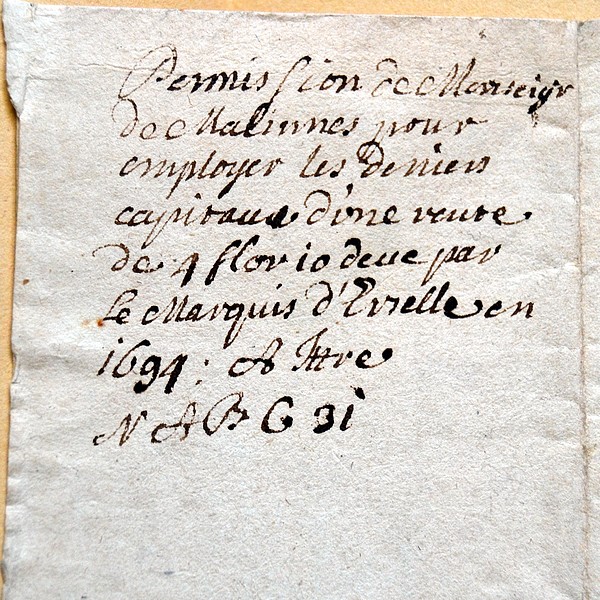 Permission de Monseigr
de Malinnes pour
employer les deniers
capitaux d'une rente
de 4 flor 10 deue par
le Marquis d'Erzelle en
1694 : A Ittre
N A B G 31